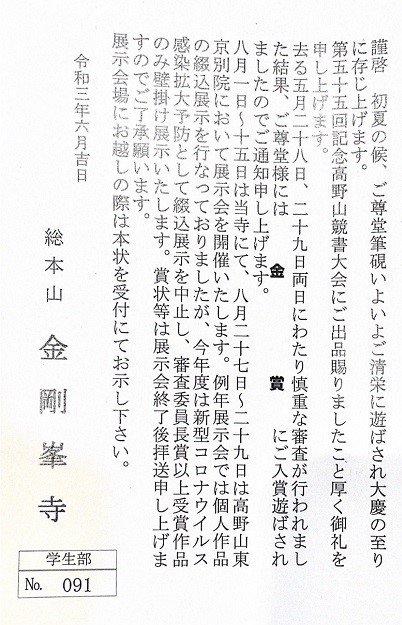 謹啓　初夏の候、ご尊堂筆硯いよいよご清栄に遊ばされ大慶の至り
に存じ上げます。
第五十五回記念高野山競書大会にご出品賜りましたこと厚く御礼を
申し上げます。
去る五月二十八日、二十九日両日にわたり慎重な審査が行われまし
た結果、ご尊堂様には　金　賞　にご入賞遊ばされ
ましたのでご通知申し上げます。
八月一日～十五日は当寺にて、八月二十七日～二十九日は高野山東
京別院において展示会を開催いたします。例年展示会では個人作品
の綴込展示を行なっておりましたが、今年度は新型コロナウイルス
感染拡大予防として綴込展示を中止し、審査委員長賞以上受賞作品
のみ壁掛け展示いたします。賞状等は展示会終了後拝送申し上げま
すのでご了承願います。
展示会場にお越しの際は本状を受付にてお示し下さい。
令和三年六月吉日
総本山　金剛峯寺
学生部
No.　091